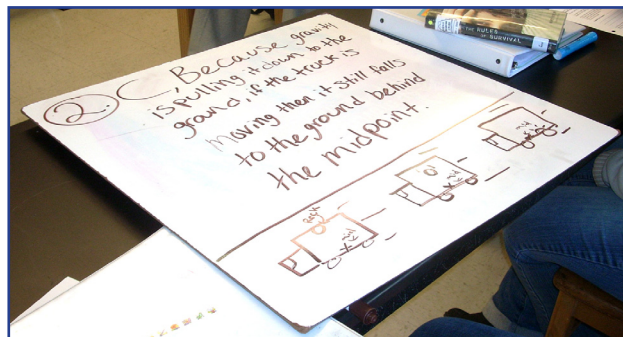 2. C, Because gravity
is pulling it down to the
ground, if the truck is
moving then it still falls
to the ground behind
the midpoint.
THE RULES
OF SURVIVAL
mid
mid
mid